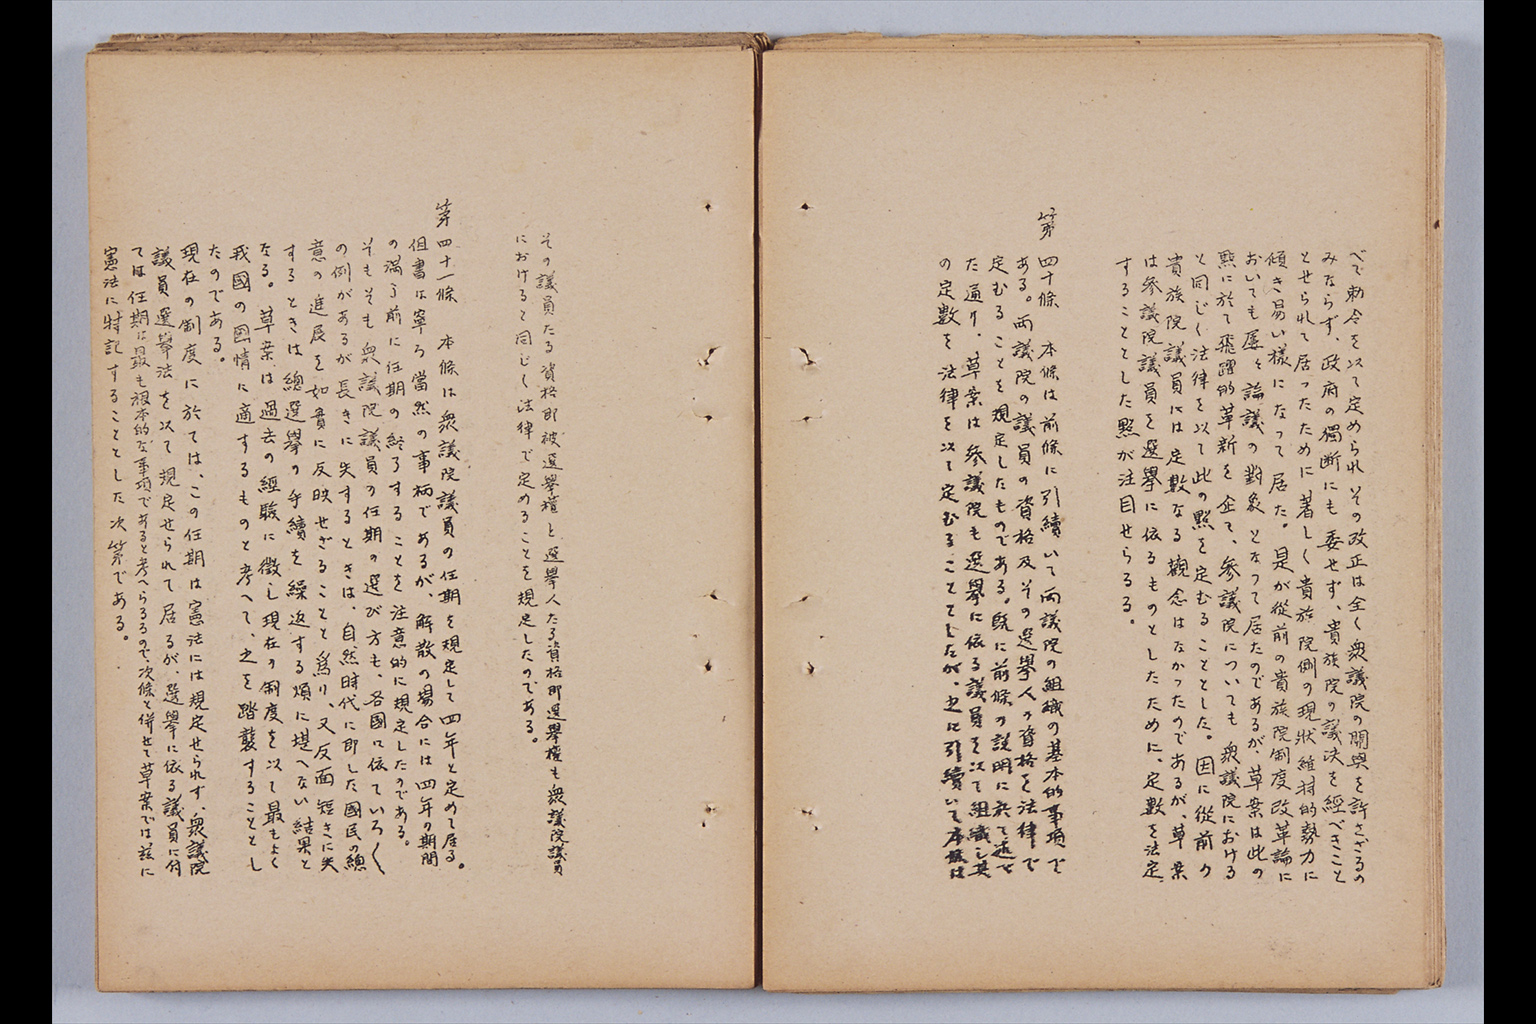 べで勅令を以て定められその改正は全く衆議院の關與を許さざるの
みならず、政府の獨斷にも委せず、貴族院の議決を經べきこと
とせられて居つたために著しく貴族院側の現狀維持的勢力に
傾き易い樣になつて居た。是が從前の貴族院制度改革論に
おいても屡々論議の對象となつて居たのであるが、草案は此の
點に於て飛躍的革新を企て、參議院についても衆議院における
と同じく法律を以て此の點を定むることとした。因に從前の
貴族院議員には定數なる觀念はなかつたのであるが、草案
は參議院議員を選擧に依るものとしたために、定數を法定
することとした點が注目せらるる。
第四十條 本條は前條に引續いて兩議院の組織の基本的事項で
ある。兩議院の議員の資格及その選擧人の資格を法律で
定むることを規定したものである。既に前條の説明に於て述べ
た通り、草案は參議院も選擧に依る議員を以て組織し其
の定數を法律を以て定むることとしたが、之に引續いて本條は
その議員たる資格即被選擧權と選擧人たる資格即選擧權も衆議院議員
におけると同じく法律で定めることを規定したのである。
第四十一條 本條は衆議院議員の任期を規定して四年と定めて居る。
但書は寧ろ當然の事柄であるが、解散の場合には四年の期間
の滿了前に任期の終了することを注意的に規定したのである。
そもそも衆議院議員の任期の選び方も、各國に依ていろ〱
の例があるが長きに失するときは、自然時代に即した國民の總
意の進展を如實に反映せざることと爲り、又反面短きに失
するときは總選擧の手續を繰返する煩に堪へない結果と
なる。草案は過去の經驗に徴し現在の制度を以て最もよく
我國の國情に適するものと考へて、之を踏襲することとし
たのである。
現在の制度に於ては、この任期は憲法には規定せられず、衆議院
議員選擧法を以て規定せられて居るが、選擧に依る議員に付
ては任期は最も根本的な事項であると考へらるるので、次條と併せて草案では茲に
憲法に特記することとした次第である。